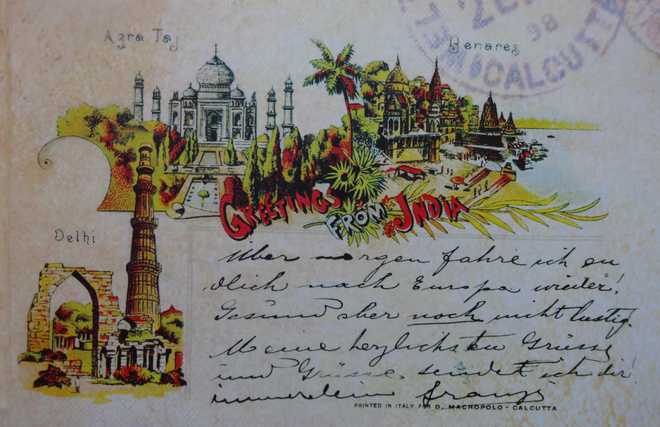 Agra Taj
Benares
98
CALCUTTA
GREETINGS FROM INDIA
Delhi
Über morgen fahre ich en
dlich nach Europa wieder!
Gesund aber noch nicht lustig.
Meine herzlichsten Grüsse
und sendet ich dir!
immer dein Franz
PRINTED IN ITALY FOR D. MACROPOLO - CALCUTTA